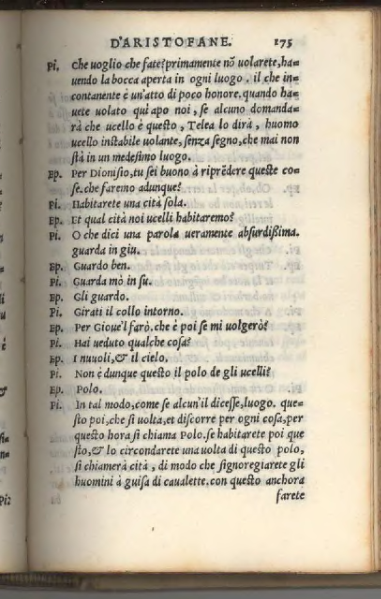 D'ARISTOFANE. 175
Pi. Che uoglio che fate? primamente nō uolarete, ha-
uendo la bocca aperta in ogni luogo. il che in-
contanente è un'atto di poco honore. quando ha-
uete uolato qui apo noi, se alcuno domanda-
rà che ucello è questo, Telea lo dirà, huomo
ucello instabile uolante, senza segno, che mai non
stà in un medesimo luogo.
Ep. Per Dionisio, tu sei buono à riprēdere queste co-
se. che faremo adunque?
Pi. Habitarete una cità sola.
Ep. Et qual cità noi ucelli habitaremo?
Pi. O che dici una parola ueramente absurdißima.
guarda in giu.
Ep. Guardo ben.
Pi. Guarda mò in su.
Ep. Gli guardo.
Pi. Girati il collo intorno.
Ep. Per Gioue'l farò. che è poi se mi uolgerò?
Pi. Hai ueduto qualche cosa?
Ep. I nuuoli, & il cielo.
Pi. Non è dunque questo il polo de gli ucelli?
Ep. Polo.
Pi. In tal modo, come se alcun'il dicesse, luogo. que-
sto poi, che si uolta, et discorre per ogni cosa, per
questo hora si chiama Polo. se habitarete poi que
sto, & lo circondarete una uolta di questo polo,
si chiamerà cità, di modo che signoregiarete gli
huomini à guisa di caualette. con questo anchora
farete